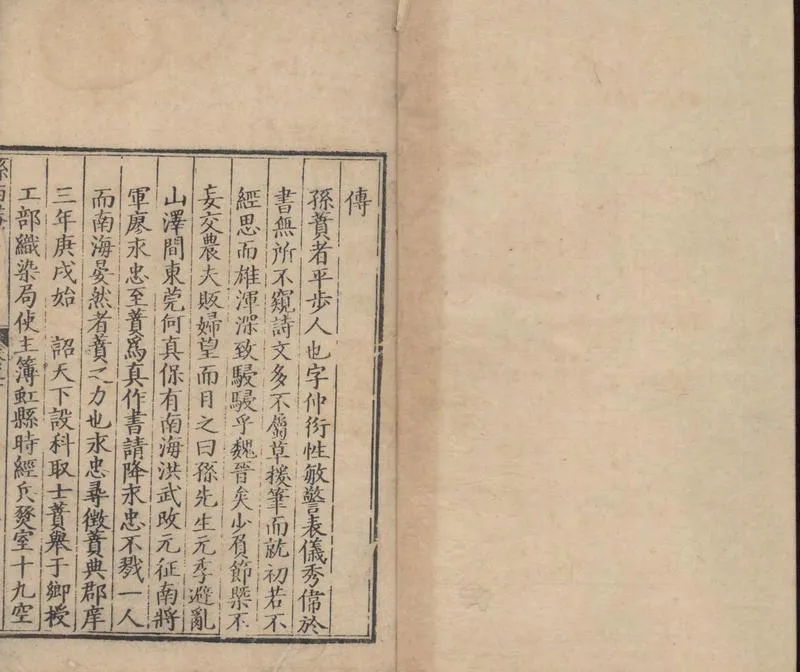 傳
孫蕡者平步人也字仲衍性敏警表儀秀偉於
書無所不窺詩文多不屬草援筆而就初若不
經思而雄渾深致駸駸乎魏晉矣少負節槩不
妄交農夫販婦望而目之曰孫先生元季避亂
山澤間東莞何真保有南海洪武改元征南將
軍廖永忠至蕡為真作書請降永忠不戮一人
而南海晏然者蕡之力也永忠尋徵蕡典郡庠
三年庚戌始 詔天下設科取士蕡舉于鄉授
工部織染局使主簿虹縣時經兵燹室十九空